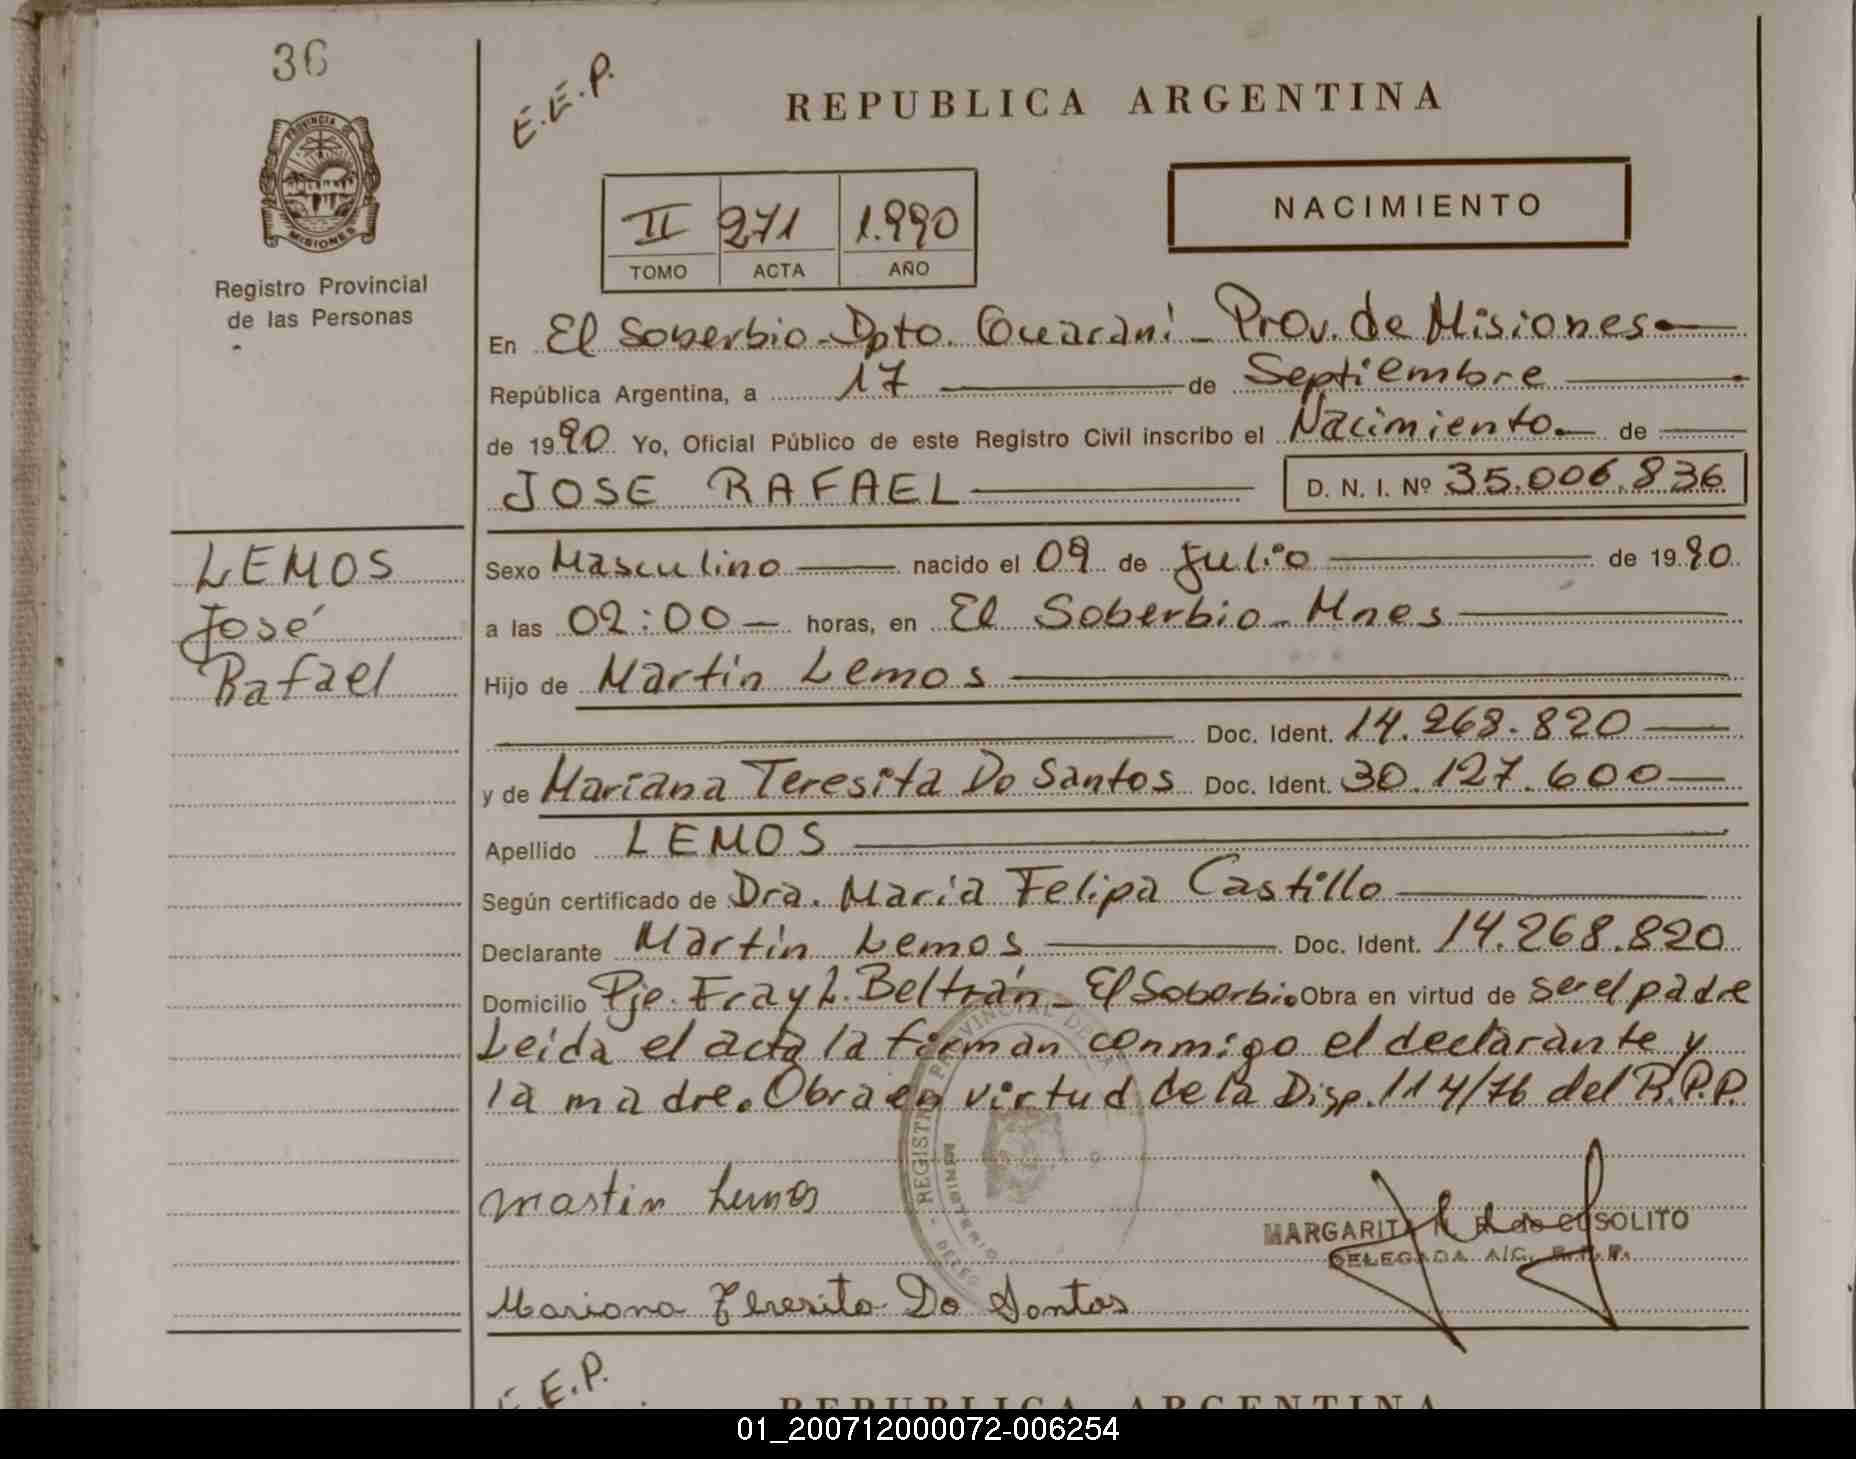 36
E.E.P.
REPUBLICA ARGENTINA
PROVINCIA DE
MISIONES
Registro Provincial
de las Personas
II 271 1.990
TOMO ACTA AÑO
NACIMIENTO
En El Soberbio - Dpto. Guaraní - Prov. de Misiones
República Argentina, a 17 de Septiembre
de 1990 Yo, Oficial Público de este Registro Civil inscribo el Nacimiento. de
JOSE RAFAEL D. N. I. Nº 35.006.836
LEMOS
José
Rafael
Sexo Masculino nacido el 09 de Julio de 1990
a las 02:00 horas, en El Soberbio - Mnes
Hijo de Martin Lemos
Doc. Ident. 14.268.820
y de Mariana Teresita Do Santos Doc. Ident. 30.127.600
Apellido LEMOS
Según certificado de Dra. María Felipa Castillo
Declarante Martin Lemos Doc. Ident. 14.268.820
Domicilio Pje. Fray L. Beltrán - El Soberbio Obra en virtud de ser el padre
Leida el acta la firman conmigo el declarante y
la madre. Obra en virtud de la Disp. 114/76 del R.P.P.
Martin Lemos
MARGARITA
DELEGADA A/C. R.P.P.
Mariana Teresita Do Santos
E.E.P.
REPUBLICA ARGENTINA
01_200712000072-006254